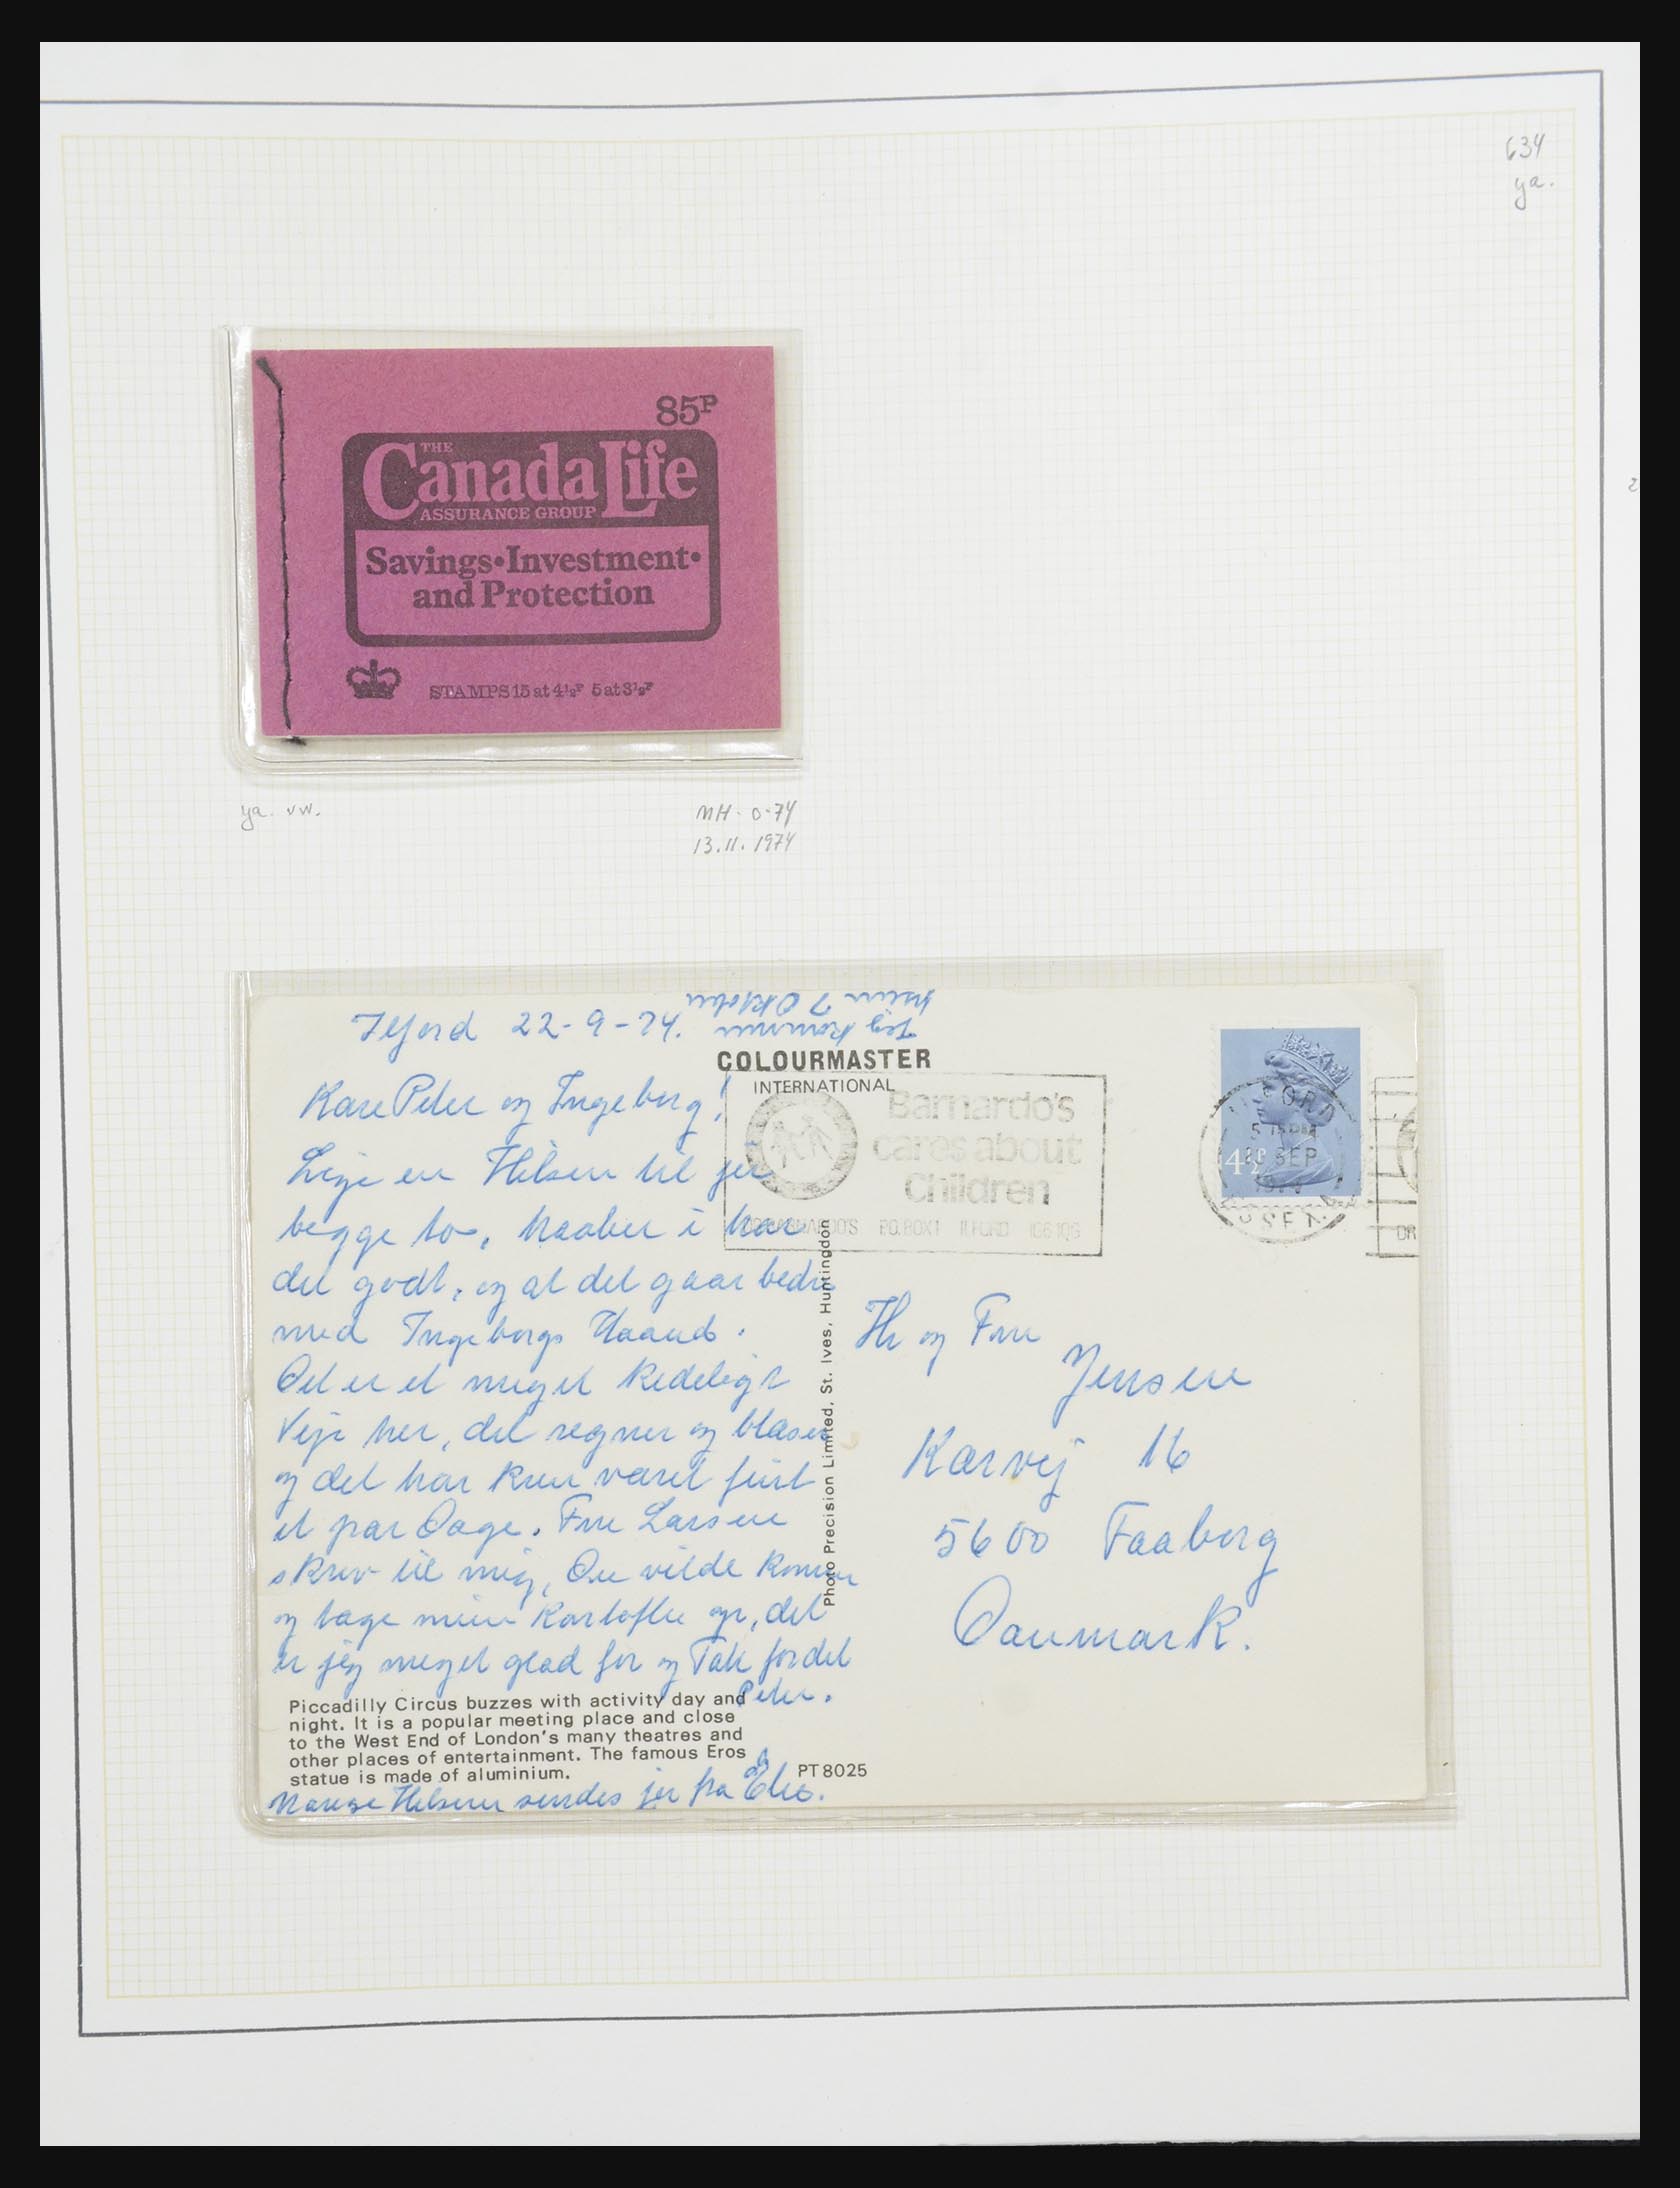 634
ya.
85P
THE
Canada Life
ASSURANCE GROUP
Savings•Investment•
and Protection
STAMPS 15 at 4½P 5 at 3½P
ya. vw.
MH. 0-74
13.11.1974
Ilford 22-9-74.
Jeg kommer
hjem 7 Oktober
COLOURMASTER
INTERNATIONAL
Kære Peter og Ingeborg!
Lige en Hilsen til jer
begge to, haaber i har
det godt, og at det gaar bedre
med Ingeborgs Haand.
Det er et meget kedeligt
Vejr her, det regner og blæser
og det har kun været fint
et par Dage. Fru Larsen
skrev til mig, Du vilde komme
og tage mine Kartofler op, det
er jeg meget glad for og Tak for det
Peter.
Piccadilly Circus buzzes with activity day and
night. It is a popular meeting place and close
to the West End of London's many theatres and
other places of entertainment. The famous Eros
statue is made of aluminium.
PT8025
Mange Hilsner sendes jer fra
Photo Precision Limited, St. Ives, Huntingdon
Barnardo's
cares about
Children
DR BARNARDO'S P.O. BOX 1 ILFORD IG6 1QG
4½P
ILFORD
5 15PM
SEP
1974
ESSEX
DR
Hr og Fru
Jensen
Karvej 16
5600 Faaborg
Danmark.
2